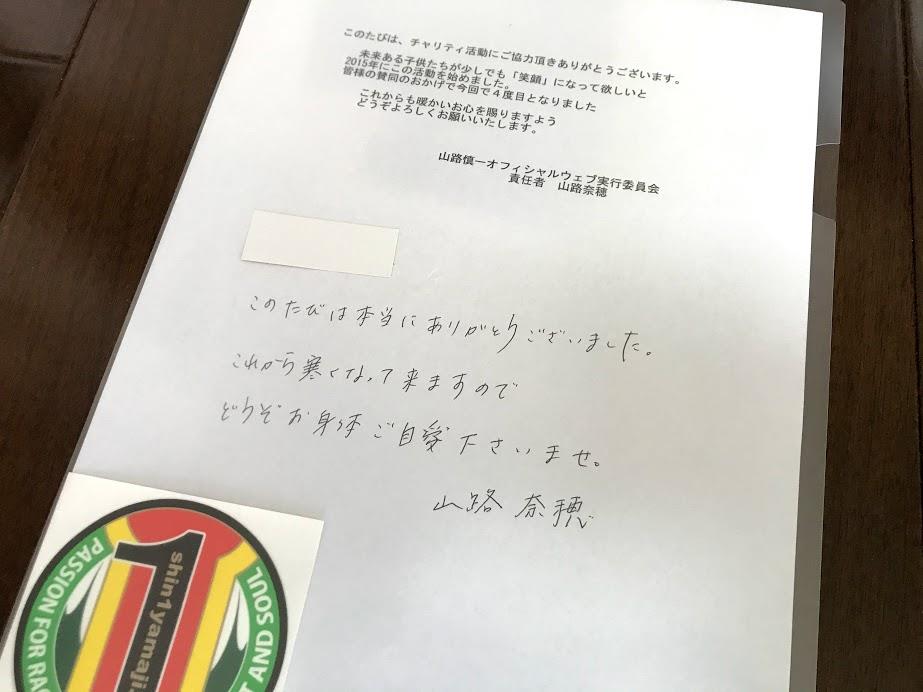 このたびは、チャリティ活動にご協力頂きありがとうございます。
未来ある子供たちが少しでも「笑顔」になって欲しいと
2015年にこの活動を始めました。
皆様の賛同のおかげで今回で４度目となりました
これからも暖かいお心を賜りますよう
どうぞよろしくお願いいたします。
山路慎一オフィシャルウェブ実行委員会
責任者　山路奈穂
このたびは本当にありがとうございました。
これから寒くなって来ますので
どうぞお身体ご自愛下さいませ。
山路 奈穂
PASSION FOR RAC
T AND SOUL
1
shin1yamaji